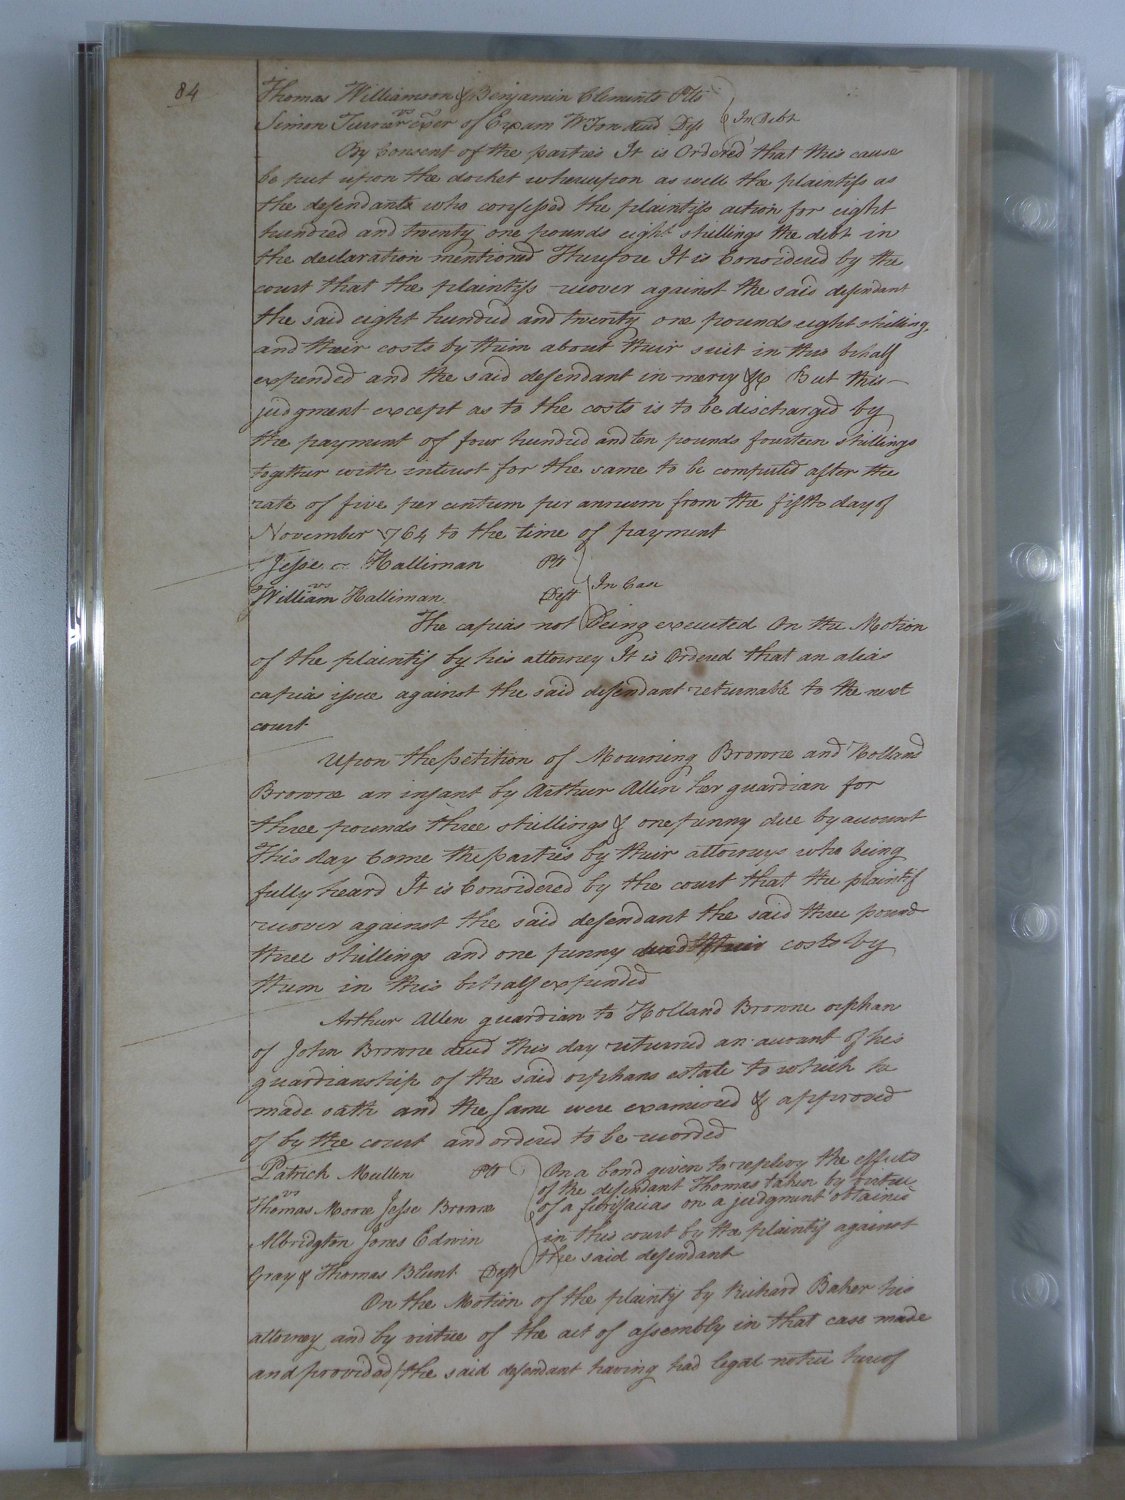 84
Thomas Williamson & Benjamin Clements Plts
vs
Simon Turner exer of Exam decd Deft
In Debt
By Consent of the parties It is Ordered that this cause
be put upon the docket whereupon as well the plaintifs as
the defendants who confessed the plaintifs action for eight
hundred and twenty one pounds eight shillings the debt in
the declaration mentioned Therefore It is Considered by the
court that the plaintifs recover against the said defendant
the said eight hundred and twenty one pounds eight shilling
and their costs by them about their suit in this behalf
expended and the said defendant in mercy &c But this
judgment except as to the costs is to be discharged by
the payment of four hundred and ten pounds fourteen shillings
together with interest for the same to be computed after the
rate of five per centum per annum from the fifth day of
November 1764 to the time of payment
Jesse Halliman Plt
vs
William Halliman Deft
In Case
The capias not being executed On the Motion
of the plaintif by his attorney It is Ordered that an alias
capias issue against the said defendant returnable to the next
court
Upon the petition of Mourning Browne and Holland
Browne an infant by Arthur Allen her guardian for
three pounds three shillings & one penny due by account
This day Came the parties by their attorneys who being
fully heard It is Considered by the court that the plaintif
recover against the said defendant the said three pound
three shillings and one penny and their costs by
them in this behalf expended
Arthur Allen guardian to Holland Browne orphan
of John Browne decd This day returned an account of his
guardianship of the said orphans estate to which he
made oath and the same were examined & approved
of by the court and ordered to be recorded
Patrick Mullen Plt
vs
Thomas Moore Jesse Browne
Albridgton Jones Edwin
Gray & Thomas Blunt Deft
On a bond given to replevy the effects
of the defendant Thomas taken by virtue
of a fierifacias on a judgment obtained
in this court by the plaintif against
the said defendant
On the Motion of the plaintif by Richard Baker his
attorney and by virtue of the act of assembly in that case made
and provided the said defendant having had legal notice hereof